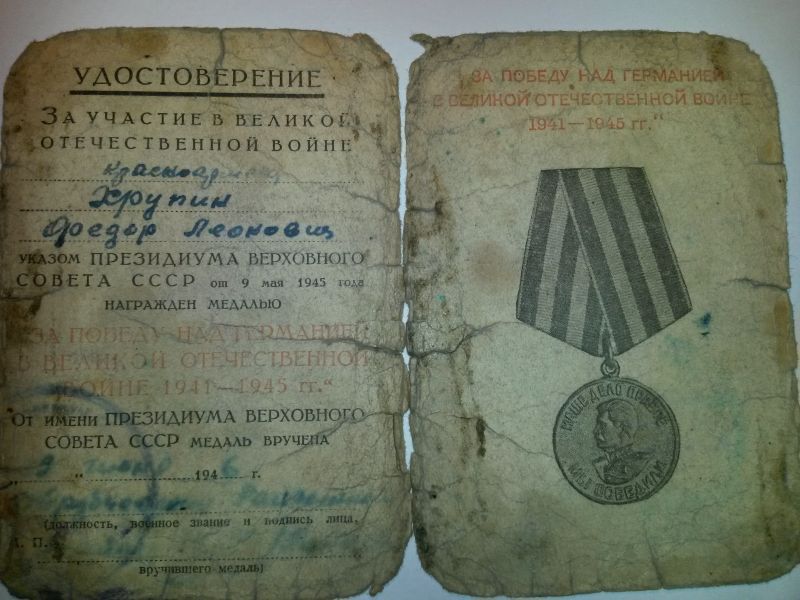 УДОСТОВЕРЕНИЕ
ЗА УЧАСТИЕ В ВЕЛИКОЙ
ОТЕЧЕСТВЕННОЙ ВОЙНЕ
красноармеец
Хрупин
Федор Леонович
УКАЗОМ ПРЕЗИДИУМА ВЕРХОВНОГО
СОВЕТА СССР от 9 мая 1945 года
НАГРАЖДЕН МЕДАЛЬЮ
„ЗА ПОБЕДУ НАД ГЕРМАНИЕЙ
В ВЕЛИКОЙ ОТЕЧЕСТВЕННОЙ
ВОЙНЕ 1941—1945 гг.“
ОТ ИМЕНИ ПРЕЗИДИУМА ВЕРХОВНОГО
СОВЕТА СССР МЕДАЛЬ ВРУЧЕНА
1946 г.
(должность, военное звание и подпись лица,
М. П.
вручившего медаль)
„ЗА ПОБЕДУ НАД ГЕРМАНИЕЙ
В ВЕЛИКОЙ ОТЕЧЕСТВЕННОЙ ВОЙНЕ
1941—1945 гг.“
НАШЕ ДЕЛО ПРАВОЕ
МЫ ПОБЕДИЛИ